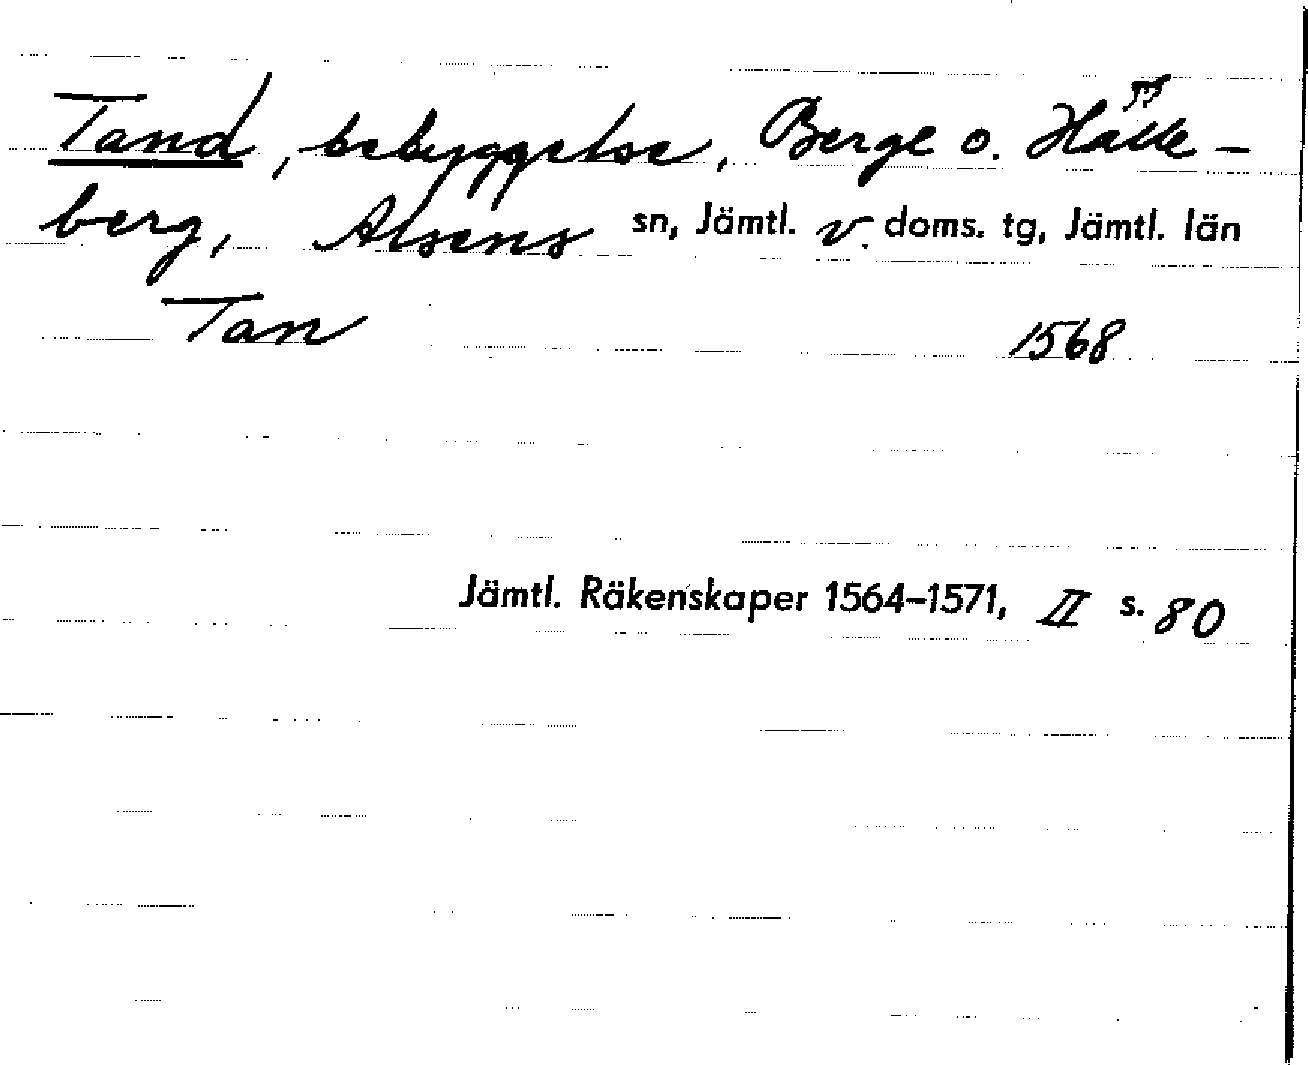 Tand, bebyggelse, Berge o. Hälle-
berg, Alsens sn, Jämtl. v. doms. tg, Jämtl. län
Tan 1568
Jämtl. Räkenskaper 1564–1571, II s. 80